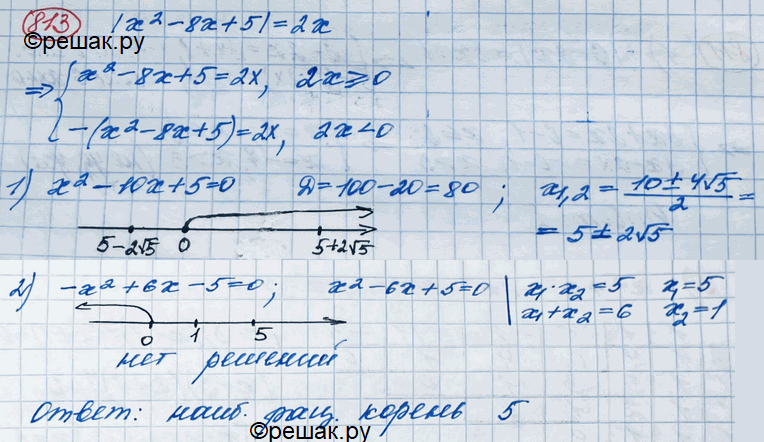 813 |x² - 8x + 5| = 2x
©решак.ру
⇒ { x² - 8x + 5 = 2x, 2x ≥ 0
-(x² - 8x + 5) = 2x, 2x < 0
1) x² - 10x + 5 = 0 D = 100 - 20 = 80 ; x₁,₂ = (10 ± 4√5)/2 =
= 5 ± 2√5
5 - 2√5 0 5 + 2√5
2) -x² + 6x - 5 = 0 ; x² - 6x + 5 = 0 | x₁ · x₂ = 5 x₁ = 5
x₁ + x₂ = 6 x₂ = 1
0 1 5
нет решений
Ответ: наиб. рац. корень 5
©решак.ру